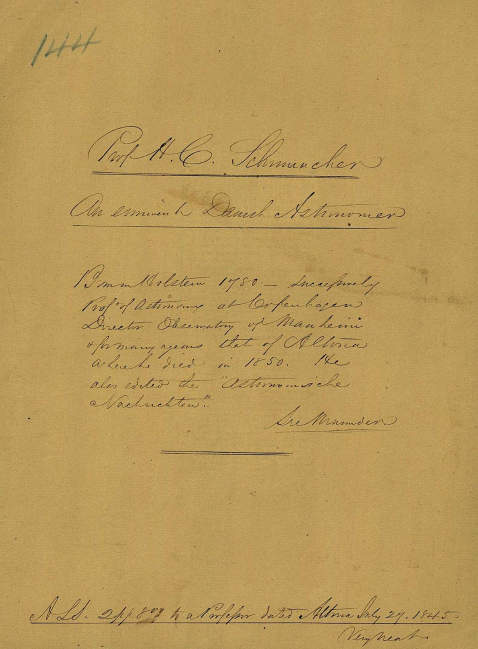 144
Prof H. C. Schumacher
An eminent Danish Astronomer
Born in Holstein 1780 — successively
Profr of Astronomy at Copenhagen
Director Observatory of Manheim
& for many years that of Altona
where he died in 1850. He
also edited the Astronomische
Nachrichten".
See
A.L.S. 2pp 8vo to a Professor dated Altona July 29. 1845.
Very neat